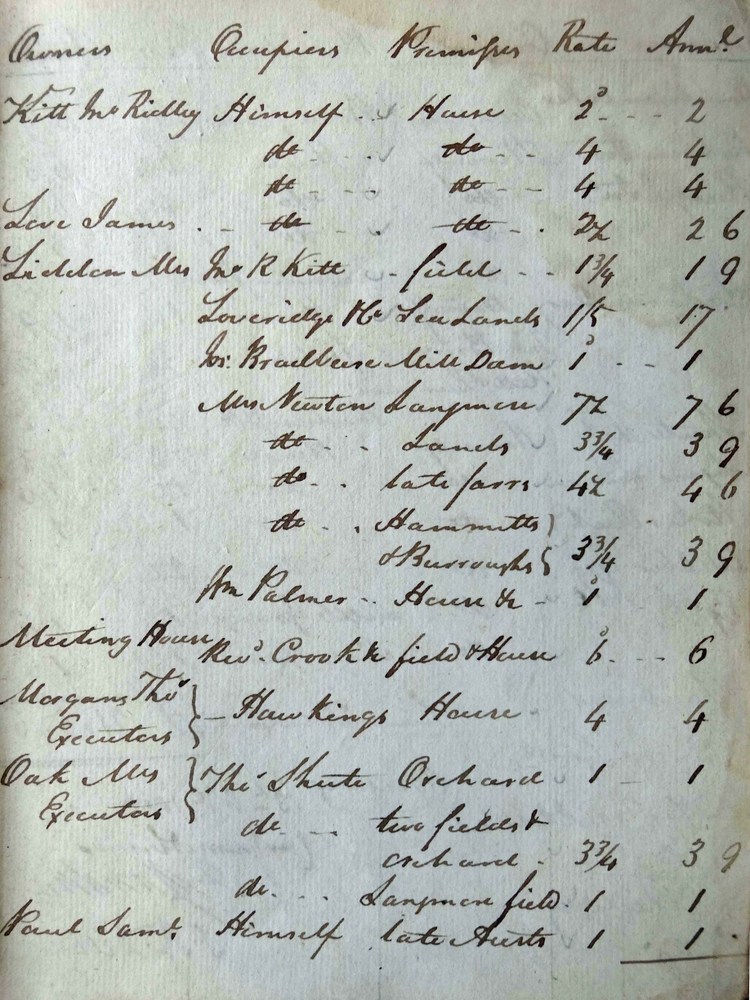 Owners Occupiers Premises Rate Amot
Kitt Jno Ridley Himself House 2 2
do do 4 4
do do 4 4
Love James do do 2½ 2 6
Liddon Mrs Jno R Kitt field 1¾ 1 9
Loveridge Hy Sea Lands 1/5 17
Jos. Bradbeere Mill Dam 1 1
Mrs Newton Langmore 7½ 7 6
do Lands 3¾ 3 9
do late farrs 4½ 4 6
do Hammetts
& Burroughs 3¾ 3 9
Wm Palmer House &c 1 1
Meeting House
Revd. Crook &c field & House 6 6
Morgans Thos
Executors Hawkings House 4 4
Oak Mrs Thos Shute Orchard 1 1
Executors do two fields &
orchard 3¾ 3 9
do Langmore field 1 1
Paul Saml. Himself late Austs 1 1